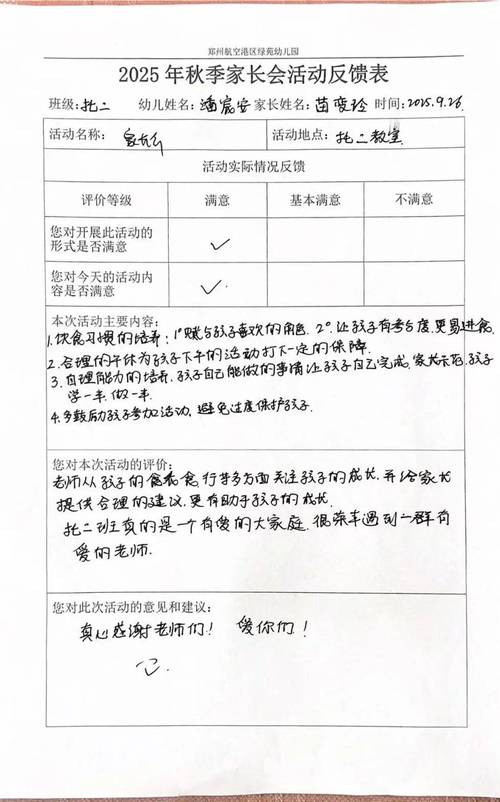 郑州航空港区绿苑幼儿园
2025 年秋季家长会活动反馈表
班级:托二 幼儿姓名:潘宸安 家长姓名:苗雯玲 时间:2025.9.26.
活动名称: 家长会 活动地点:托二教室
活动实际情况反馈
评价等级 满意 基本满意 不满意
您对开展此活动的
形式是否满意 ✓
您对今天的活动内
容是否满意 ✓
本次活动主要内容:
1.饮食习惯的培养:1°赋与孩子喜欢的角色. 2°让孩子有参与度,更易进食
2.合理的午休为孩子下午的活动打下一定的保障.
3.自理能力的培养.孩子自己能做的事情让孩子自己完成,家长示范,孩子
学一半.做一半.
4.多鼓励孩子参加活动,避免过度保护孩子.
您对本次活动的评价:
老师从孩子的食衣食行等多方面关注孩子的成长,并给家长
提供合理的建议.更有助于孩子的成长.
托二班真的是一个有爱的大家庭.很荣幸遇到一群有
爱的老师.
您对此次活动的意见和建议:
真心感谢老师们! 爱你们!